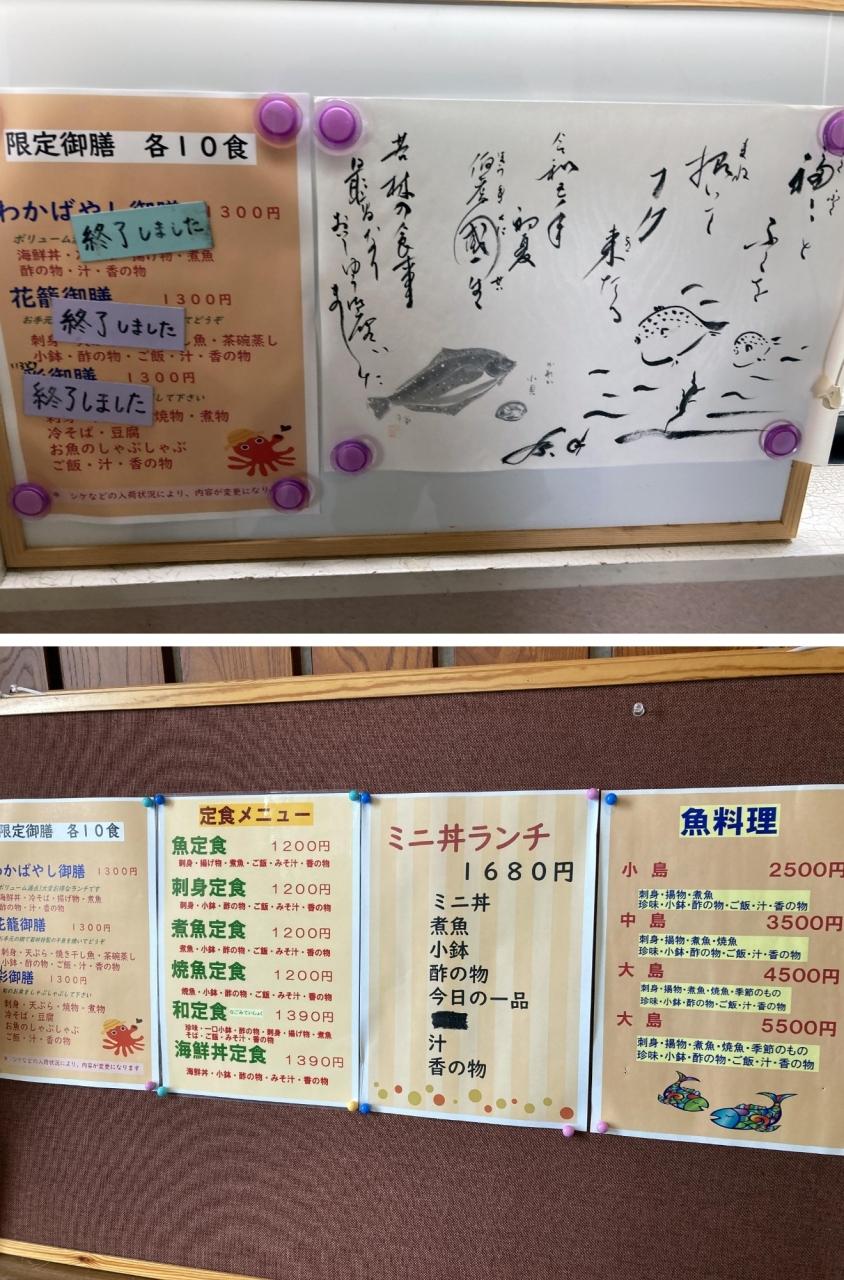 限定御膳 各10食
わかばやし御膳 1300円
終了しました
海鮮丼・
揚げ物・煮魚
酢の物・汁・香の物
花籠御膳 1300円
終了しました
お手元
てどうぞ
刺身
魚・茶碗蒸し
小鉢・酢の物・ご飯・汁・香の物
彩御膳 1300円
終了しました
して下さい
刺身
焼物・煮物
冷そば・豆腐
お魚のしゃぶしゃぶ
ご飯・汁・香の物
※ シケなどの入荷状況により、内容が変更になり
福と
ふくを
招いて
フク
来たる
令和三年
初夏
國生
若林の食事
最高なり
かれい
小貝
限定御膳 各10食
わかばやし御膳 1300円
ボリューム満点!大変お得なランチです
海鮮丼・冷そば・揚げ物・煮魚
酢の物・汁・香の物
花籠御膳 1300円
刺身・天ぷら・焼き干し魚・茶碗蒸し
小鉢・酢の物・ご飯・汁・香の物
彩御膳 1300円
旬のお魚をしゃぶしゃぶして下さい
刺身・天ぷら・焼物・煮物
冷そば・豆腐
お魚のしゃぶしゃぶ
ご飯・汁・香の物
※ シケなどの入荷状況により、内容が変更になります
定食メニュー
魚定食 1200円
刺身・揚げ物・煮魚・ご飯・みそ汁・香の物
刺身定食 1200円
刺身・小鉢・酢の物・ご飯・みそ汁・香の物
煮魚定食 1200円
煮魚・小鉢・酢の物・ご飯・みそ汁・香の物
焼魚定食 1200円
焼魚・小鉢・酢の物・ご飯・みそ汁・香の物
和定食 なごみていしょく 1390円
珍味・一口小鉢・酢の物・刺身・揚げ物・煮魚
そば・ご飯・みそ汁・香の物
海鮮丼定食 1390円
海鮮丼・小鉢・酢の物・みそ汁・香の物
ミニ丼ランチ
1680円
ミニ丼
煮魚
小鉢
酢の物
今日の一品
汁
香の物
魚料理
小島 2500円
刺身・揚物・煮魚
珍味・小鉢・酢の物・ご飯・汁・香の物
中島 3500円
刺身・揚物・煮魚・焼魚
珍味・小鉢・酢の物・ご飯・汁・香の物
大島 4500円
刺身・揚物・煮魚・焼魚・季節のもの
珍味・小鉢・酢の物・ご飯・汁・香の物
大島 5500円
刺身・揚物・煮魚・焼魚・季節のもの
珍味・小鉢・酢の物・ご飯・汁・香の物